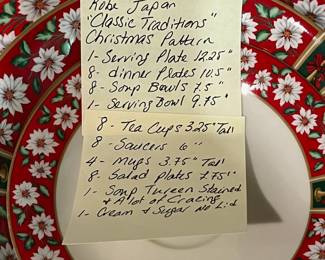 Kobe Japan
"Classic Traditions"
Christmas Pattern
1- Serving Plate 12.25"
8- dinner Plates 10.5"
8- Soup Bowls 7.5"
1- Serving Bowl 9.75"
8- Tea Cups 3.25" Tall
8- Saucers 6"
4- Mugs 3.75" Tall
8- Salad plates 7.75"
1- Soup Tureen Stained
& A lot of Crazing
1- Cream & Sugar No Lid